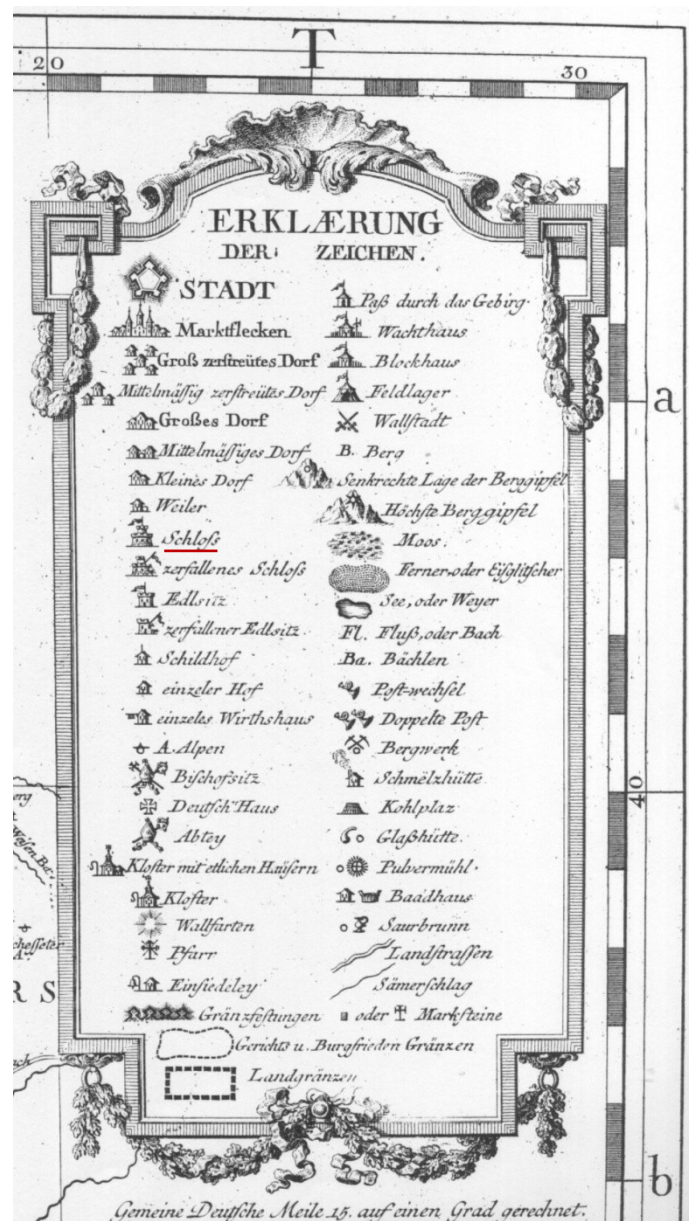 T
20
30
ERKLÆRUNG
DER ZEICHEN.
STADT
Marktflecken
Groß zerstreütes Dorf
Mittelmässig zerstreütes Dorf
Großes Dorf
Mittelmässiges Dorf
Kleines Dorf
Weiler
Schloss
zerfallenes Schloss
Edlsitz
zerfallener Edlsitz
Schildhof
einzeler Hof
einzeles Wirthshaus
A. Alpen
Bischofsitz
Deutsch Haus
Abtey
Kloster mit etlichen Haüsern
Kloster
Wallfarten
Pfarr
Einsiedeley
Gränzfestungen
Paß durch das Gebirg.
Wachthaus
Blockhaus
Feldlager
Wallstadt
B. Berg
Senkrechte Lage der Berggipfel
Höchste Berggipfel
Moos.
Ferner, oder Eisglitscher
See, oder Weyer
Fl. Fluß, oder Bach
Ba. Bächlen
Post-wechsel
Doppelte Post
Bergwerk
Schmelzhütte
Kohlplaz
Glaßhütte.
Pulvermühl.
Baadhaus
Saurbrunn
Landstrassen
Sämerschlag
oder Marksteine
Gerichts u. Burgfrieden Gränzen
Landgränzen
a
40
b
R S
Gemeine Deutsche Meile 15. auf einen Grad gerechnet.